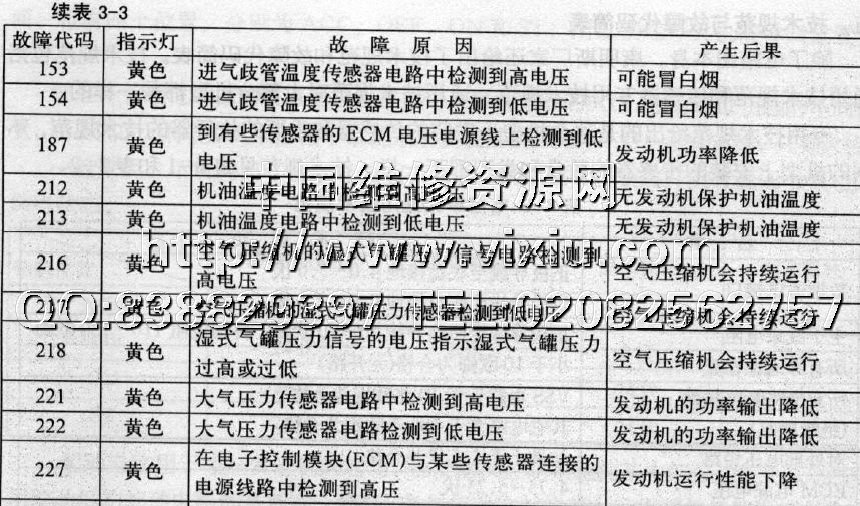 续表 3-3
故障代码 指示灯 故障原因 产生后果
153 黄色 进气歧管温度传感器电路中检测到高电压 可能冒白烟
154 黄色 进气歧管温度传感器电路中检测到低电压 可能冒白烟
187 黄色 到有些传感器的 ECM 电压电源线上检测到低
电压 发动机功率降低
212 黄色 机油温度电路中检测到高电压 无发动机保护机油温度
213 黄色 机油温度电路中检测到低电压 无发动机保护机油温度
中国维修资源网
http://www.vixiu.com
216 黄色 空气压缩机的湿式气罐压力信号电路检测到
高电压 空气压缩机会持续运行
217 黄色 空气压缩机的湿式气罐压力传感器检测到低电压 空气压缩机会持续运行
TEL:02082562757
218 黄色 湿式气罐压力信号的电压指示湿式气罐压力
过高或过低 空气压缩机会持续运行
221 黄色 大气压力传感器电路中检测到高电压 发动机的功率输出降低
222 黄色 大气压力传感器电路检测到低电压 发动机的功率输出降低
227 黄色 在电子控制模块(ECM)与某些传感器连接的
电源线路中检测到高压 发动机运行性能下降